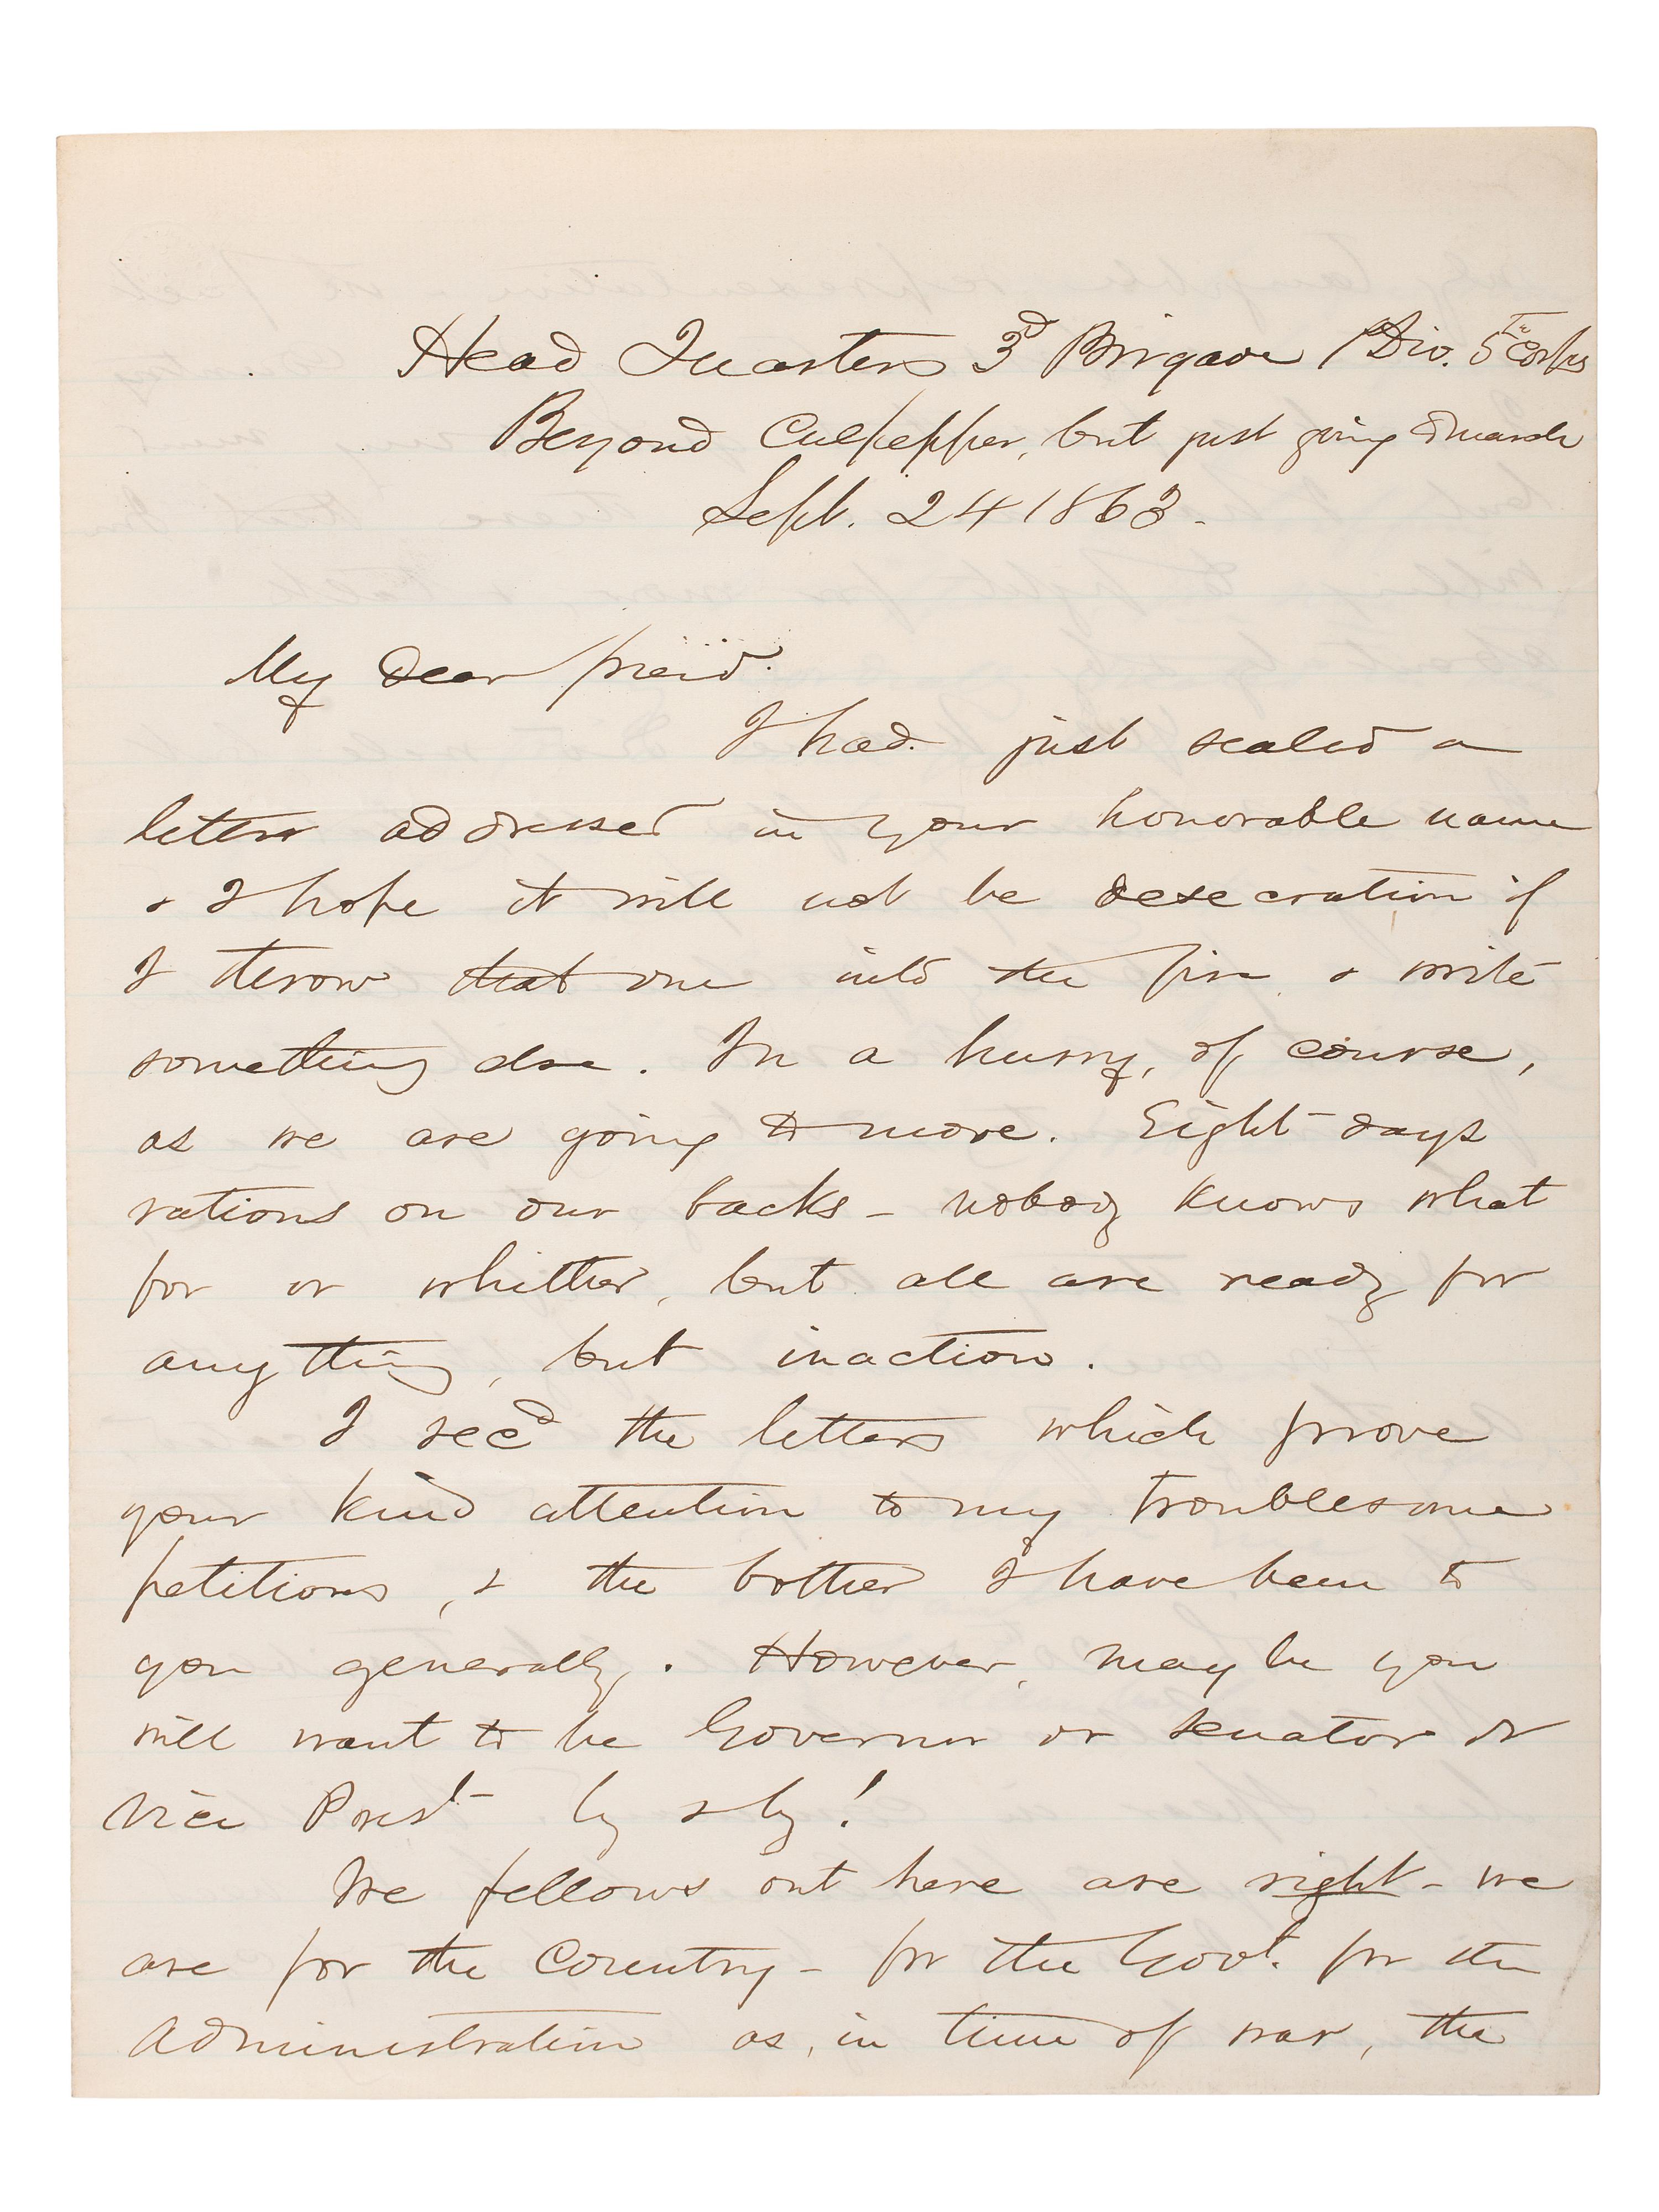 Head Quarters 3d Brigade 1 Div. 5th Corps
Beyond Culpepper, but just going to march
Sept. 24 1863.
My dear friend.
I had just sealed a
letter addressed in your honorable name
& I hope it will not be desecration if
I throw that one into the fire & write
something else. In a hurry, of course,
as we are going to move. Eight days
rations on our backs - nobody knows what
for or whither, but all are ready for
anything, but inaction.
I recd the letters which prove
your kind attention to my troublesome
petitions, & the bother I have been to
you generally. However, may be you
will want to be Governor or Senator or
Vice Prest by & by!
We fellows out here are right - we
are for the Country - for the Govt. for the
Administration as, in time of war, the